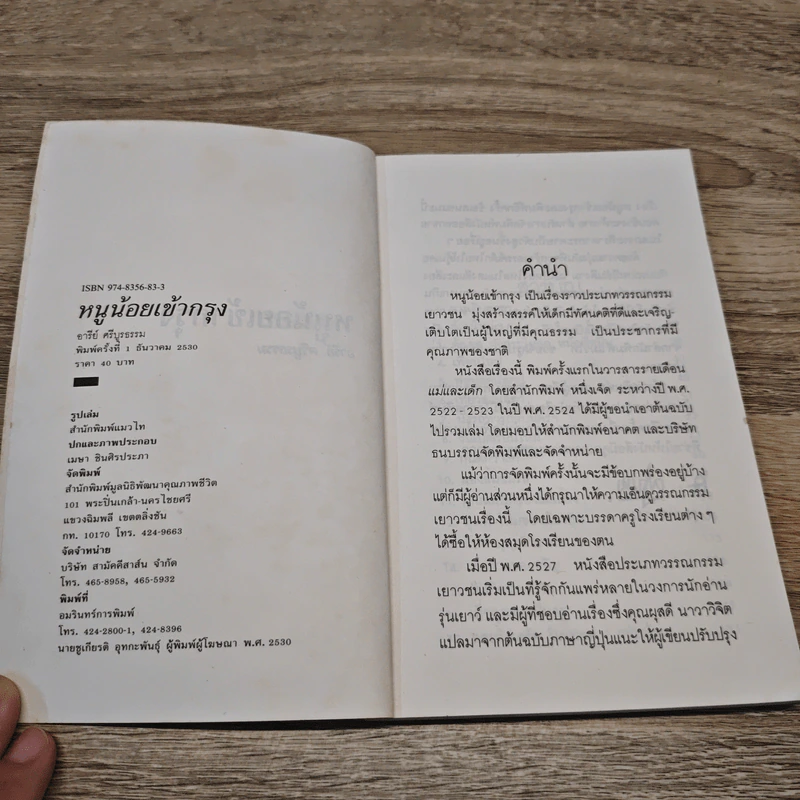 ISBN 974-8356-83-3
หนูน้อยเข้ากรุง
อารีย์ ศรีบูรธรรม
พิมพ์ครั้งที่ 1 ธันวาคม 2530
ราคา 40 บาท
รูปเล่ม
สำนักพิมพ์แมวไท
ปกและภาพประกอบ
เมษา ชินศิรประภา
จัดพิมพ์
สำนักพิมพ์มูลนิธิพัฒนาคุณภาพชีวิต
101 พระปิ่นเกล้า-นครไชยศรี
แขวงฉิมพลี เขตตลิ่งชัน
กท. 10170 โทร. 424-9663
จัดจำหน่าย
บริษัท สามัคคีสาส์น จำกัด
โทร. 465-8958, 465-5932
พิมพ์ที่
อมรินทร์การพิมพ์
โทร. 424-2800-1, 424-8396
นายชูเกียรติ อุทกะพันธุ์ ผู้พิมพ์ผู้โฆษณา พ.ศ. 2530
คำนำ
หนูน้อยเข้ากรุง เป็นเรื่องราวประเภทวรรณกรรม
เยาวชน มุ่งสร้างสรรค์ให้เด็กมีทัศนคติที่ดีและเจริญ-
เติบโตเป็นผู้ใหญ่ที่มีคุณธรรม เป็นประชากรที่มี
คุณภาพของชาติ
หนังสือเรื่องนี้ พิมพ์ครั้งแรกในวารสารรายเดือน
แม่และเด็ก โดยสำนักพิมพ์ หนึ่งเจ็ด ระหว่างปี พ.ศ.
2522-2523 ในปี พ.ศ. 2524 ได้มีผู้ขอนำเอาต้นฉบับ
ไปรวมเล่ม โดยมอบให้สำนักพิมพ์อนาคต และบริษัท
ธนบรรณจัดพิมพ์และจัดจำหน่าย
แม้ว่าการจัดพิมพ์ครั้งนั้นจะมีข้อบกพร่องอยู่บ้าง
แต่ก็มีผู้อ่านส่วนหนึ่งได้กรุณาให้ความเอ็นดูวรรณกรรม
เยาวชนเรื่องนี้ โดยเฉพาะบรรดาครูโรงเรียนต่าง ๆ
ได้ซื้อให้ห้องสมุดโรงเรียนของตน
เมื่อปี พ.ศ. 2527 หนังสือประเภทวรรณกรรม
เยาวชนเริ่มเป็นที่รู้จักกันแพร่หลายในวงการนักอ่าน
รุ่นเยาว์ และมีผู้ที่ชอบอ่านเรื่องซึ่งคุณผุสดี นาวาวิจิต
แปลมาจากต้นฉบับภาษาญี่ปุ่นแนะให้ผู้เขียนปรับปรุง